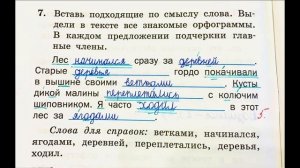 7. Вставь подходящие по смыслу слова. Вы-
дели в тексте все знакомые орфограммы.
В каждом предложении подчеркни глав-
ные члены.
Лес начинался сразу за деревней.
Старые деревья гордо покачивали
в вышине своими ветками. Кусты
дикой малины переплетались с колючим
шиповником. Я часто ходил в этот
лес за ягодами
Слова для справок: ветками, начинался,
ягодами, деревней, переплетались, деревья,
ходил.